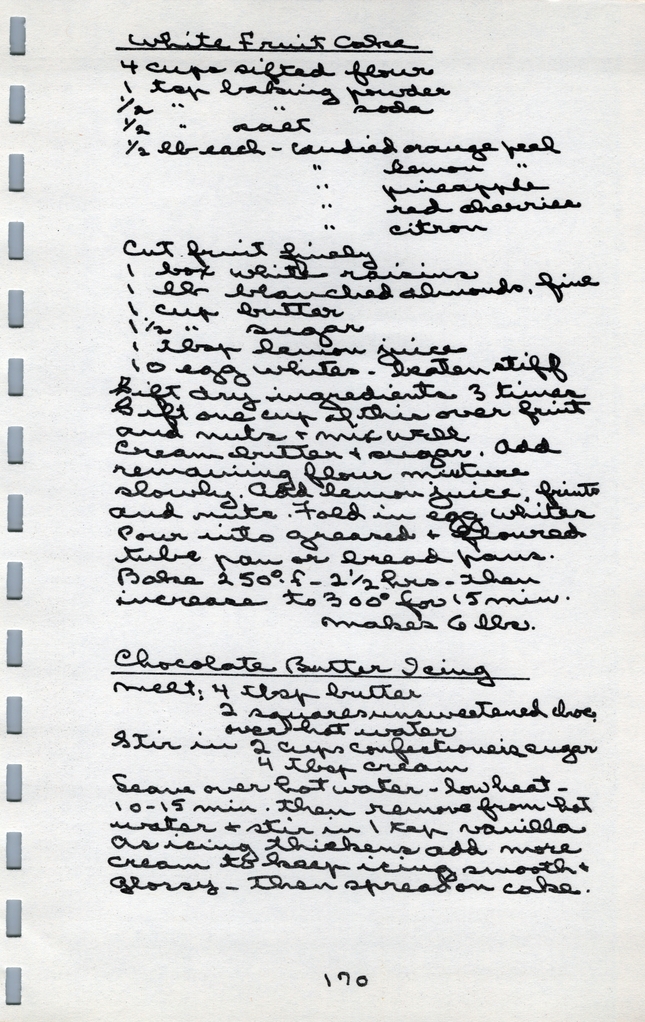 White Fruit Cake
4 cups sifted flour
1 tsp baking powder
1/2 " " soda
1/2 " salt
1/2 lb each - candied orange peel
" lemon "
" pineapple
" red cherries
" citron
Cut fruit finely
1 box white raisins
1 lb blanched almonds, fine
1 cup butter
1 1/2 " sugar
1 tbsp lemon juice
10 egg whites - beaten stiff
Sift dry ingredients 3 times
Sift one cup of this over fruit
and nuts + mix well
Cream butter + sugar. Add
remaining flour mixture
slowly. Add lemon juice, fruits
and nuts. Fold in egg whites
Pour into greased + floured
tube pan or bread pans.
Bake 250° f - 2 1/2 hrs - then
increase to 300° for 15 min.
makes 6 lbs.
Chocolate Butter Icing
Melt: 4 tbsp butter
2 squares unsweetened choc.
over hot water
Stir in 2 cups confectioneis sugar
4 tbsp cream
Leave over hot water - low heat -
10-15 min. then remove from hot
water + stir in 1 tsp vanilla
As icing thickens add more
cream to keep icing smooth +
glossy - then spread on cake.
170